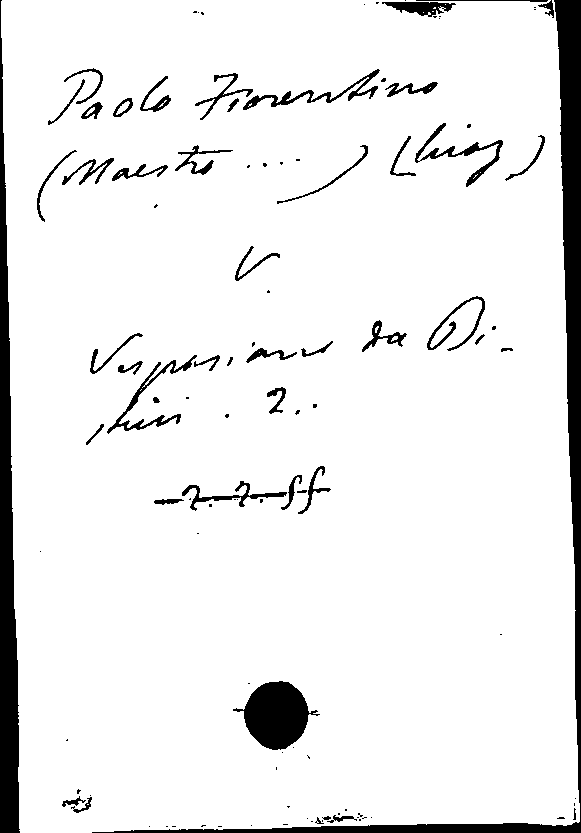 Paolo Fiorentino
(Maestro ....) (biog)
V.
Vespasiano da Bi-
stici . 2..
2. 2. ff